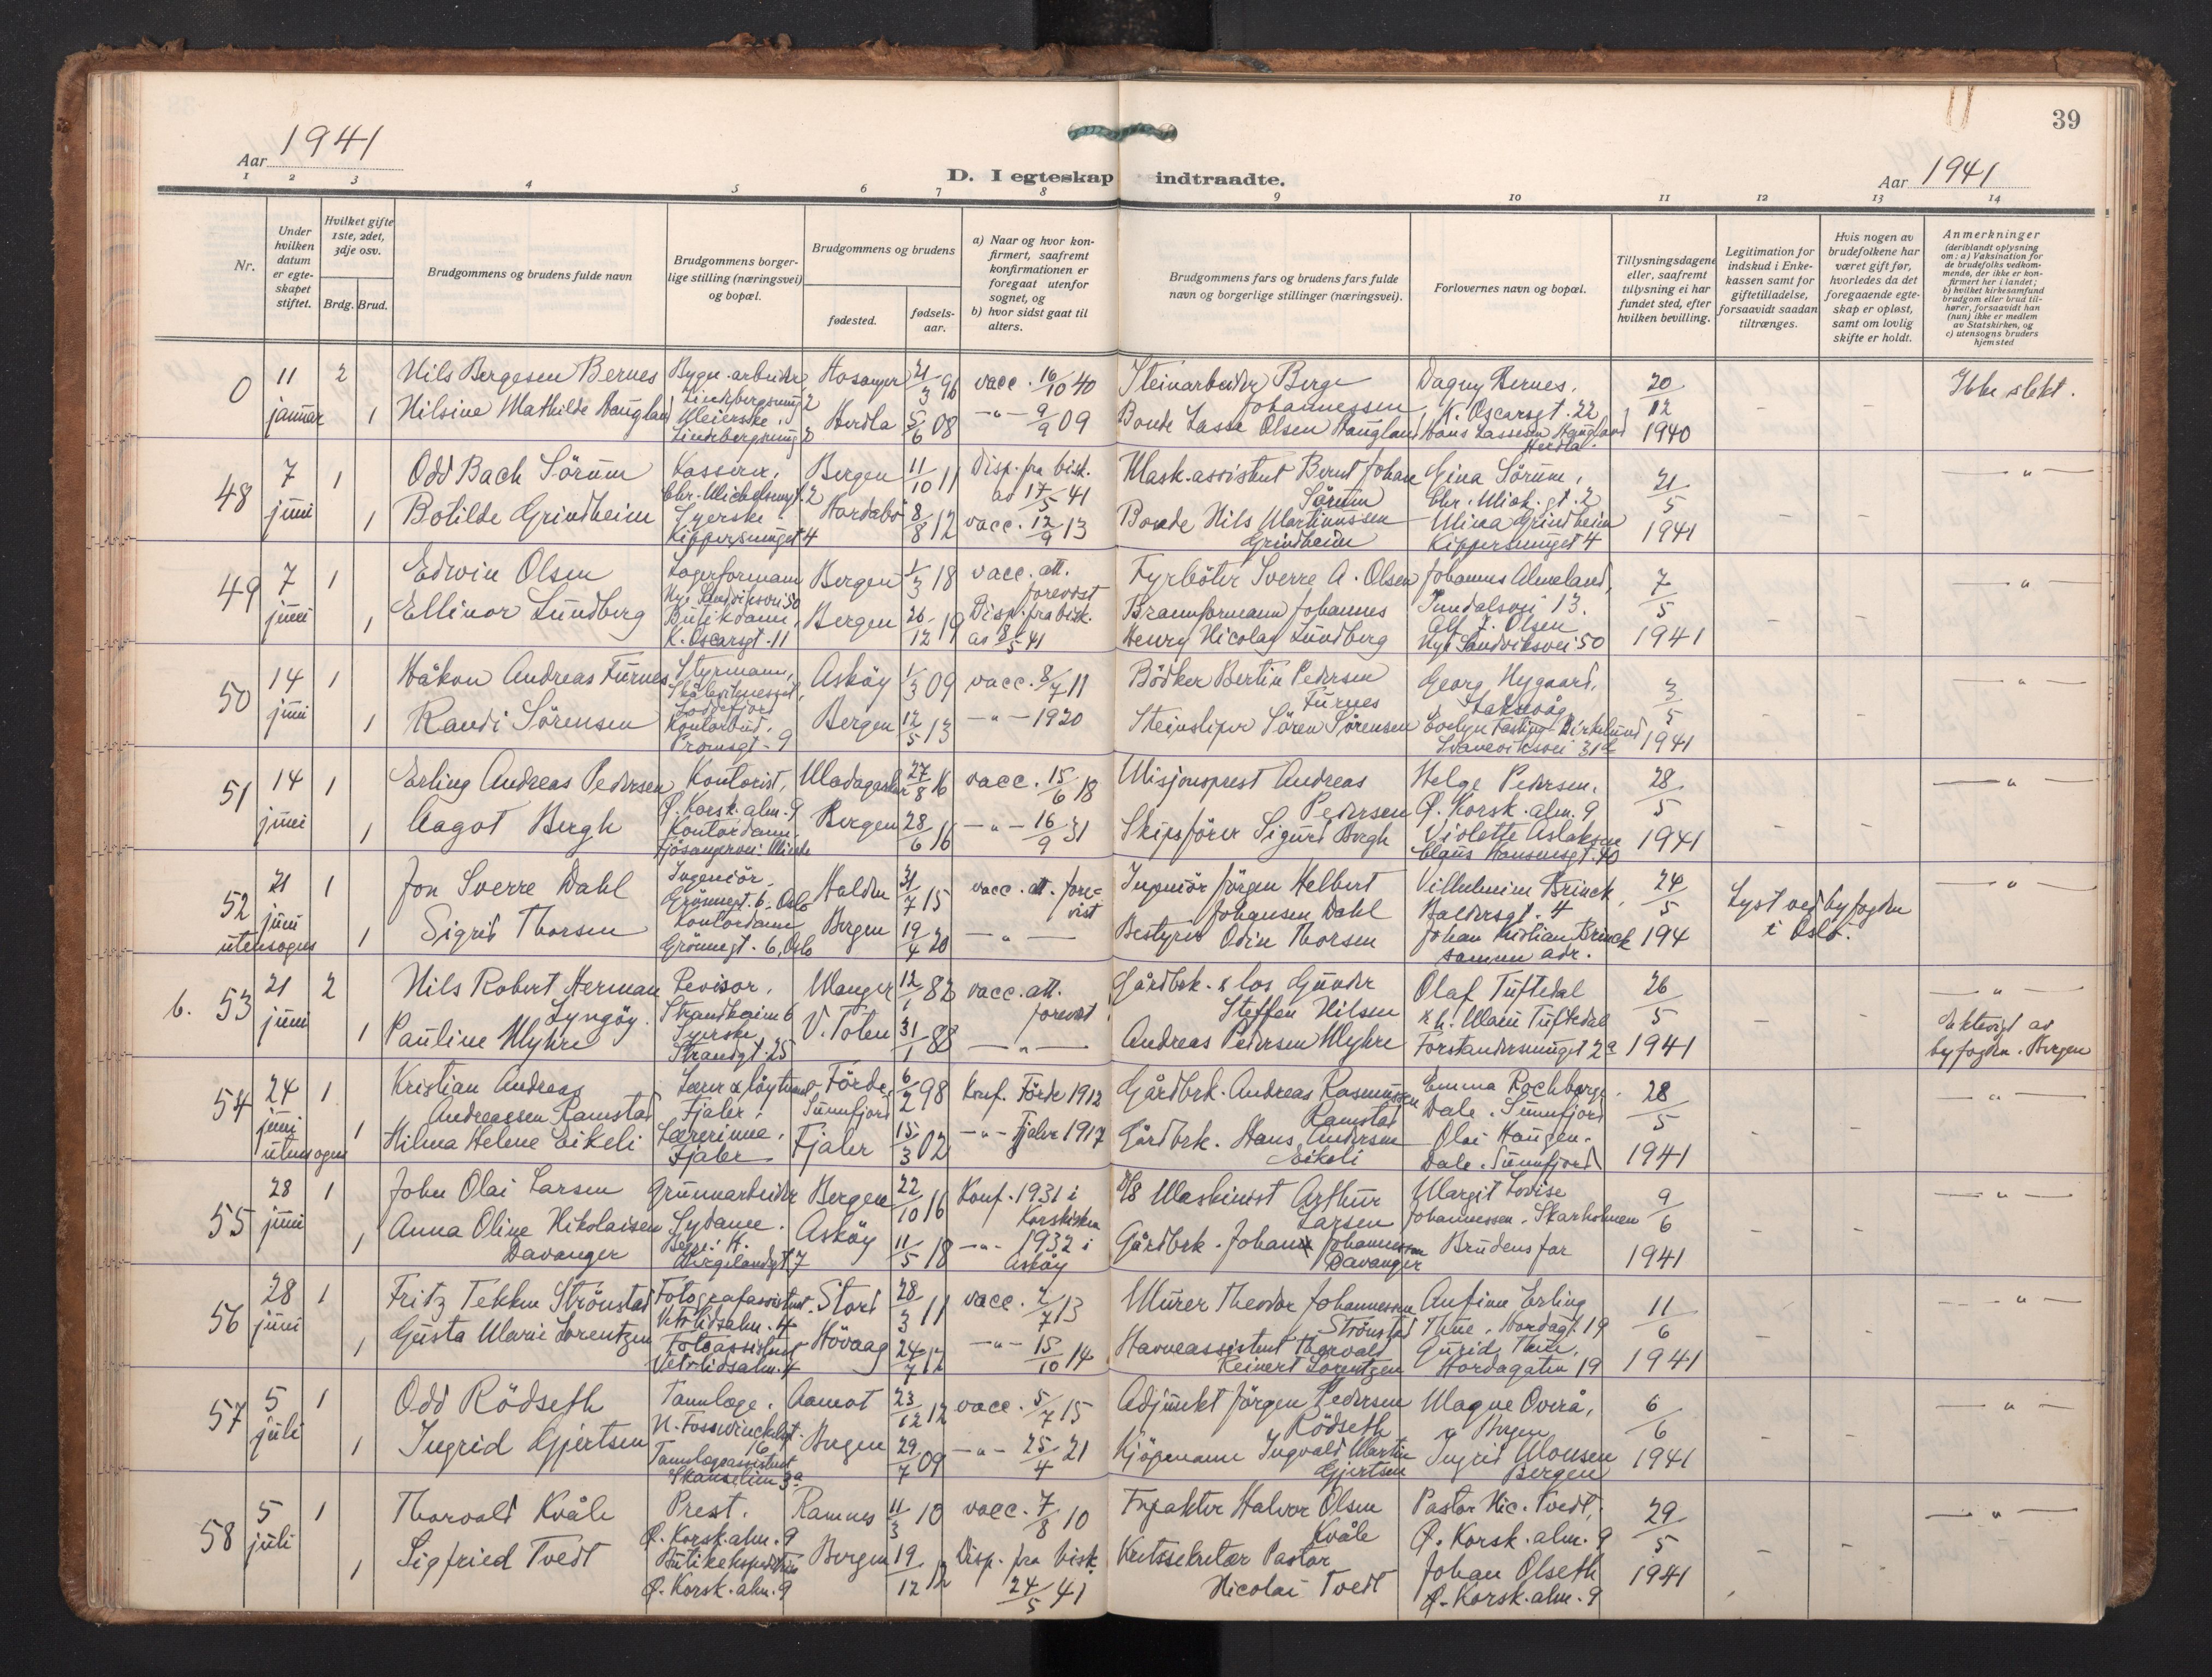 39
Aar 1941
D. I egteskap indtraadte.
Aar 1941
1 2 3 4 5 6 7 8 9 10 11 12 13 14
Nr.
Under hvilken datum er egteskapet stiftet.
Hvilket gifte 1ste, 2det, 3dje osv.
Brdg. Brud.
Brudgommens og brudens fulde navn
Brudgommens borgerlige stilling (næringsvei) og bopæl.
Brudgommens og brudens
fødested.
fødselsaar.
a) Naar og hvor konfirmert, saafremt konfirmationen er foregaat utenfor sognet, og
b) hvor sidst gaat til alters.
Brudgommens fars og brudens fars fulde navn og borgerlige stillinger (næringsvei).
Forlovernes navn og bopæl.
Tillysningsdagene eller, saafremt tillysning ei har fundet sted, efter hvilken bevilling.
Legitimation for indskud i Enkekassen samt for giftetilladelse, forsaavidt saadan tiltrænges.
Hvis nogen av brudefolkene har været gift før, hvorledes da det foregaaende egteskap er opløst, samt om lovlig skifte er holdt.
Anmerkninger
(deriblandt oplysning om: a) Vaksination for de brudefolks vedkommende, der ikke er konfirmert her i landet;
b) hvilket kirkesamfund brudgom eller brud tilhører, forsaavidt han (hun) ikke er medlem av Statskirken, og
c) utensogns bruders hjemsted
0 11 januar 2 Nils Bergesen Bernes Bygn.arbeider, Lindebergsmug 2 Hosanger 21/3 96 vacc. 16/10 40 Steinarbeider Berge Johannessen Dagny Bernes, K. Oscarsgt. 22 20/12 1940 - - Ikke slekt.
1 Nilsine Mathilde Haugland Meierske, Lindebergsmug 2 Herdla 5/6 08 -"- 9/9 09 Bonde Lasse Olsen Haugland Hans Lassesen Haugland Herdla.
48 7 juni 1 Odd Bach Sörum Kasserer, Chr. Michelsensgt. 2 Bergen 11/10 11 Disp. fra bisk. av 17/5 41 Mask.assistent Bernt Johan Sörum Gina Sörum, Chr. Mich. gt. 2 21/5 1941 - - -"-
1 Botilde Grindheim Syerske, Kippersmuget 4 Hordabö 8/8 12 vacc. 12/9 13 Bonde Nils Martinussen Grindheim Mina Grindheim Kippersmuget 4
49 7 juni 1 Edwin Olsen Lagerformann Nye Sandviksvei 50 Bergen 1/3 18 vacc. att. forevist Fyrböter Sverre A. Olsen Johannes Almeland, Sundalsvei 13. 7/5 1941 - - -"-
1 Ellinor Lundberg Butikdame, K. Oscarsgt. 11 Bergen 26/12 19 Disp. fra bisk. av 8/5 41 Brannformann Johannes Henry Nicolay Lundberg Alf J. Olsen Nye Sandviksvei 50
50 14 juni 1 Håkon Andreas Furnes Styrmann, Loddefjord Asköy 1/3 09 vacc. 8/7 11 Bödker Bertin Pedersen Furnes Georg Nygaard, Laksevåg 3/5 1941 - - -"-
1 Randi Sörensen Kontorbud, Promsgt. 9 Bergen 12/5 13 -"- 1920 Steinsliper Sören Sörensen Evelyn Fasting Birkelund Svaneviksvei 31d
51 14 juni 1 Erling Andreas Pedersen Kontorist, Ö. Korsk. alm. 9 Madagaskar 27/8 16 vacc. 15/6 18 Misjonsprest Andreas Pedersen Helge Pedersen, Ö. Korsk. alm. 9 28/5 1941 - - -"-
1 Aagot Bergh Kontordame, Fjösangervei Minde Bergen 28/6 16 -"- 16/9 31 Skipsförer Sigurd Bergh Violette Aslaksen Claus Hansensgt. 40
52 21 juni utensogns 1 Jon Sverre Dahl Ingeniör, Grönnegt. 6, Oslo Halden 31/7 15 vacc. att. forevist Ingeniör Jörgen Helbert Johansen Dahl Vilhelmine Brinck, Baldersgt. 4 24/5 194 Lyst ved byfogden i Oslo. -"-
1 Sigrid Thorsen Kontordame Grönnegt. 6, Oslo Bergen 19/4 20 -"- Bestyrer Odin Thorsen Johan Kristian Brinck samme adr.
6. 53 21 juni 2 Nils Robert Herman Lyngöy. Revisor, Strandheim 6 Manger 12/1 82 vacc. att. forevist Gårdbrk. & los Gunder Steffen Nilsen Olaf Tuftedal 26/5 1941 - - -"-
1 Pauline Myhre Syerske Strandgt. 25 V. Toten 31/1 88 -"- Andreas Pedersen Myhre & h. Marie Tuftedal Forstandersmuget 2a Ektevigd av byfogden i Bergen
54 24 juni utensogns 1 Kristian Andreas Andreassen Ramstad Fjaler. Förde Sunnfjord 6/2 98 Konf. Förde 1912 Gårdbrk. Andreas Rasmussen Ramstad Emma Rochberg, Dale, Sunnfjord 28/5 1941 - - -"-
1 Hilma Helene Eikeli Lærerinne, Fjaler Fjaler 15/3 02 -"- Fjaler 1917 Gårdbrk. Hans Andersen Eikeli Olai Haugen, Dale, Sunnfjord
55 28 juni 1 John Olai Larsen Grunnarbeider Bergen 22/10 16 Konf. 1931 i Korskirken D/S Maskinist Arthur Larsen Margit Lovise Johannessen, Skarholmen 9/6 1941 - - -"-
1 Anna Oline Nikolaisen Davanger Sydame. Begge: H. Wergelandsgt 7 Asköy 11/5 18 -"- 1932 i Asköy Gårdbrk. Johan Johannessen Davanger Brudens far
56 28 juni 1 Fritz Tekken Strönstad Fotografassistent Vetrlidsalm. 4 Stord 28/3 11 vacc. 2/7 13 Murer Theodor Johannessen Strönstad Anfinn Erling Thue, Hordagt. 19 11/6 1941 - - -"-
1 Gusta Marie Lorentzen Fotoassistent Vetrlidsalm. 4 Hövaag 24/7 12 -"- 15/10 14 Havneassistent Thorvald Reinert Lorentzen Gurid Thue, Hordagaten 19
57 5 juli 1 Odd Rödseth Tannlæge, N. Fosswinckelsgt. 16 Aamot 23/12 12 vacc. 5/7 15 Adjunkt Jörgen Pedersen Rödseth Magne Overå, Bergen 6/6 1941 - - -"-
1 Ingrid Gjertsen Tannlægeassistent Skanselien 3a Bergen 29/7 09 -"- 25/4 21 Kjöpmann Ingvald Martin Gjertsen Ingrid Monsen Bergen
58 5 juli 1 Thorvald Kvåle Prest. Ö. Korsk. alm. 9 Ramnes 11/3 10 vacc. 7/8 10 Halvor Olsen Kvåle Pastor Nic. Tvedt, Ö. Korsk. alm. 9 29/5 1941 - - -"-
1 Sigfried Tvedt Ö. Korsk. alm. 9 Bergen 19/12 12 Disp. fra bisk. 24/5 41 Kretssekretær Pastor Nicolai Tvedt Johan Olseth Ö. Korsk. alm. 9